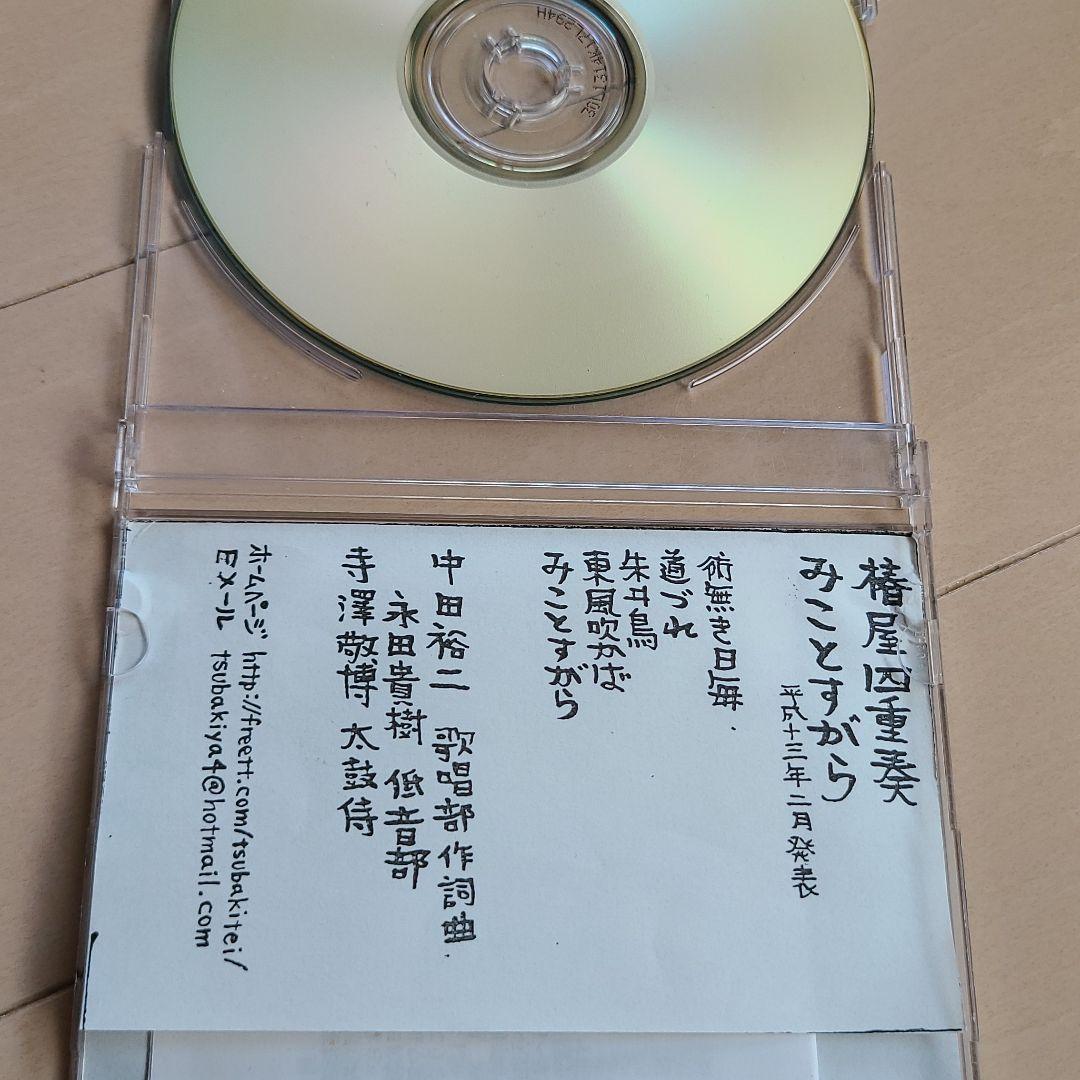 椿屋四重奏
みことすがら
平成十三年二月発表
術無き日毎.
道づれ
朱雀鳥
東風吹かば
みことすがら
中田裕二 歌唱部 作詞曲.
永田貴樹 低音部
寺澤敬博 太鼓侍
ホームページ http://freett.com/tsubakitei/
Eメール tsubakiya4@hotmail.com